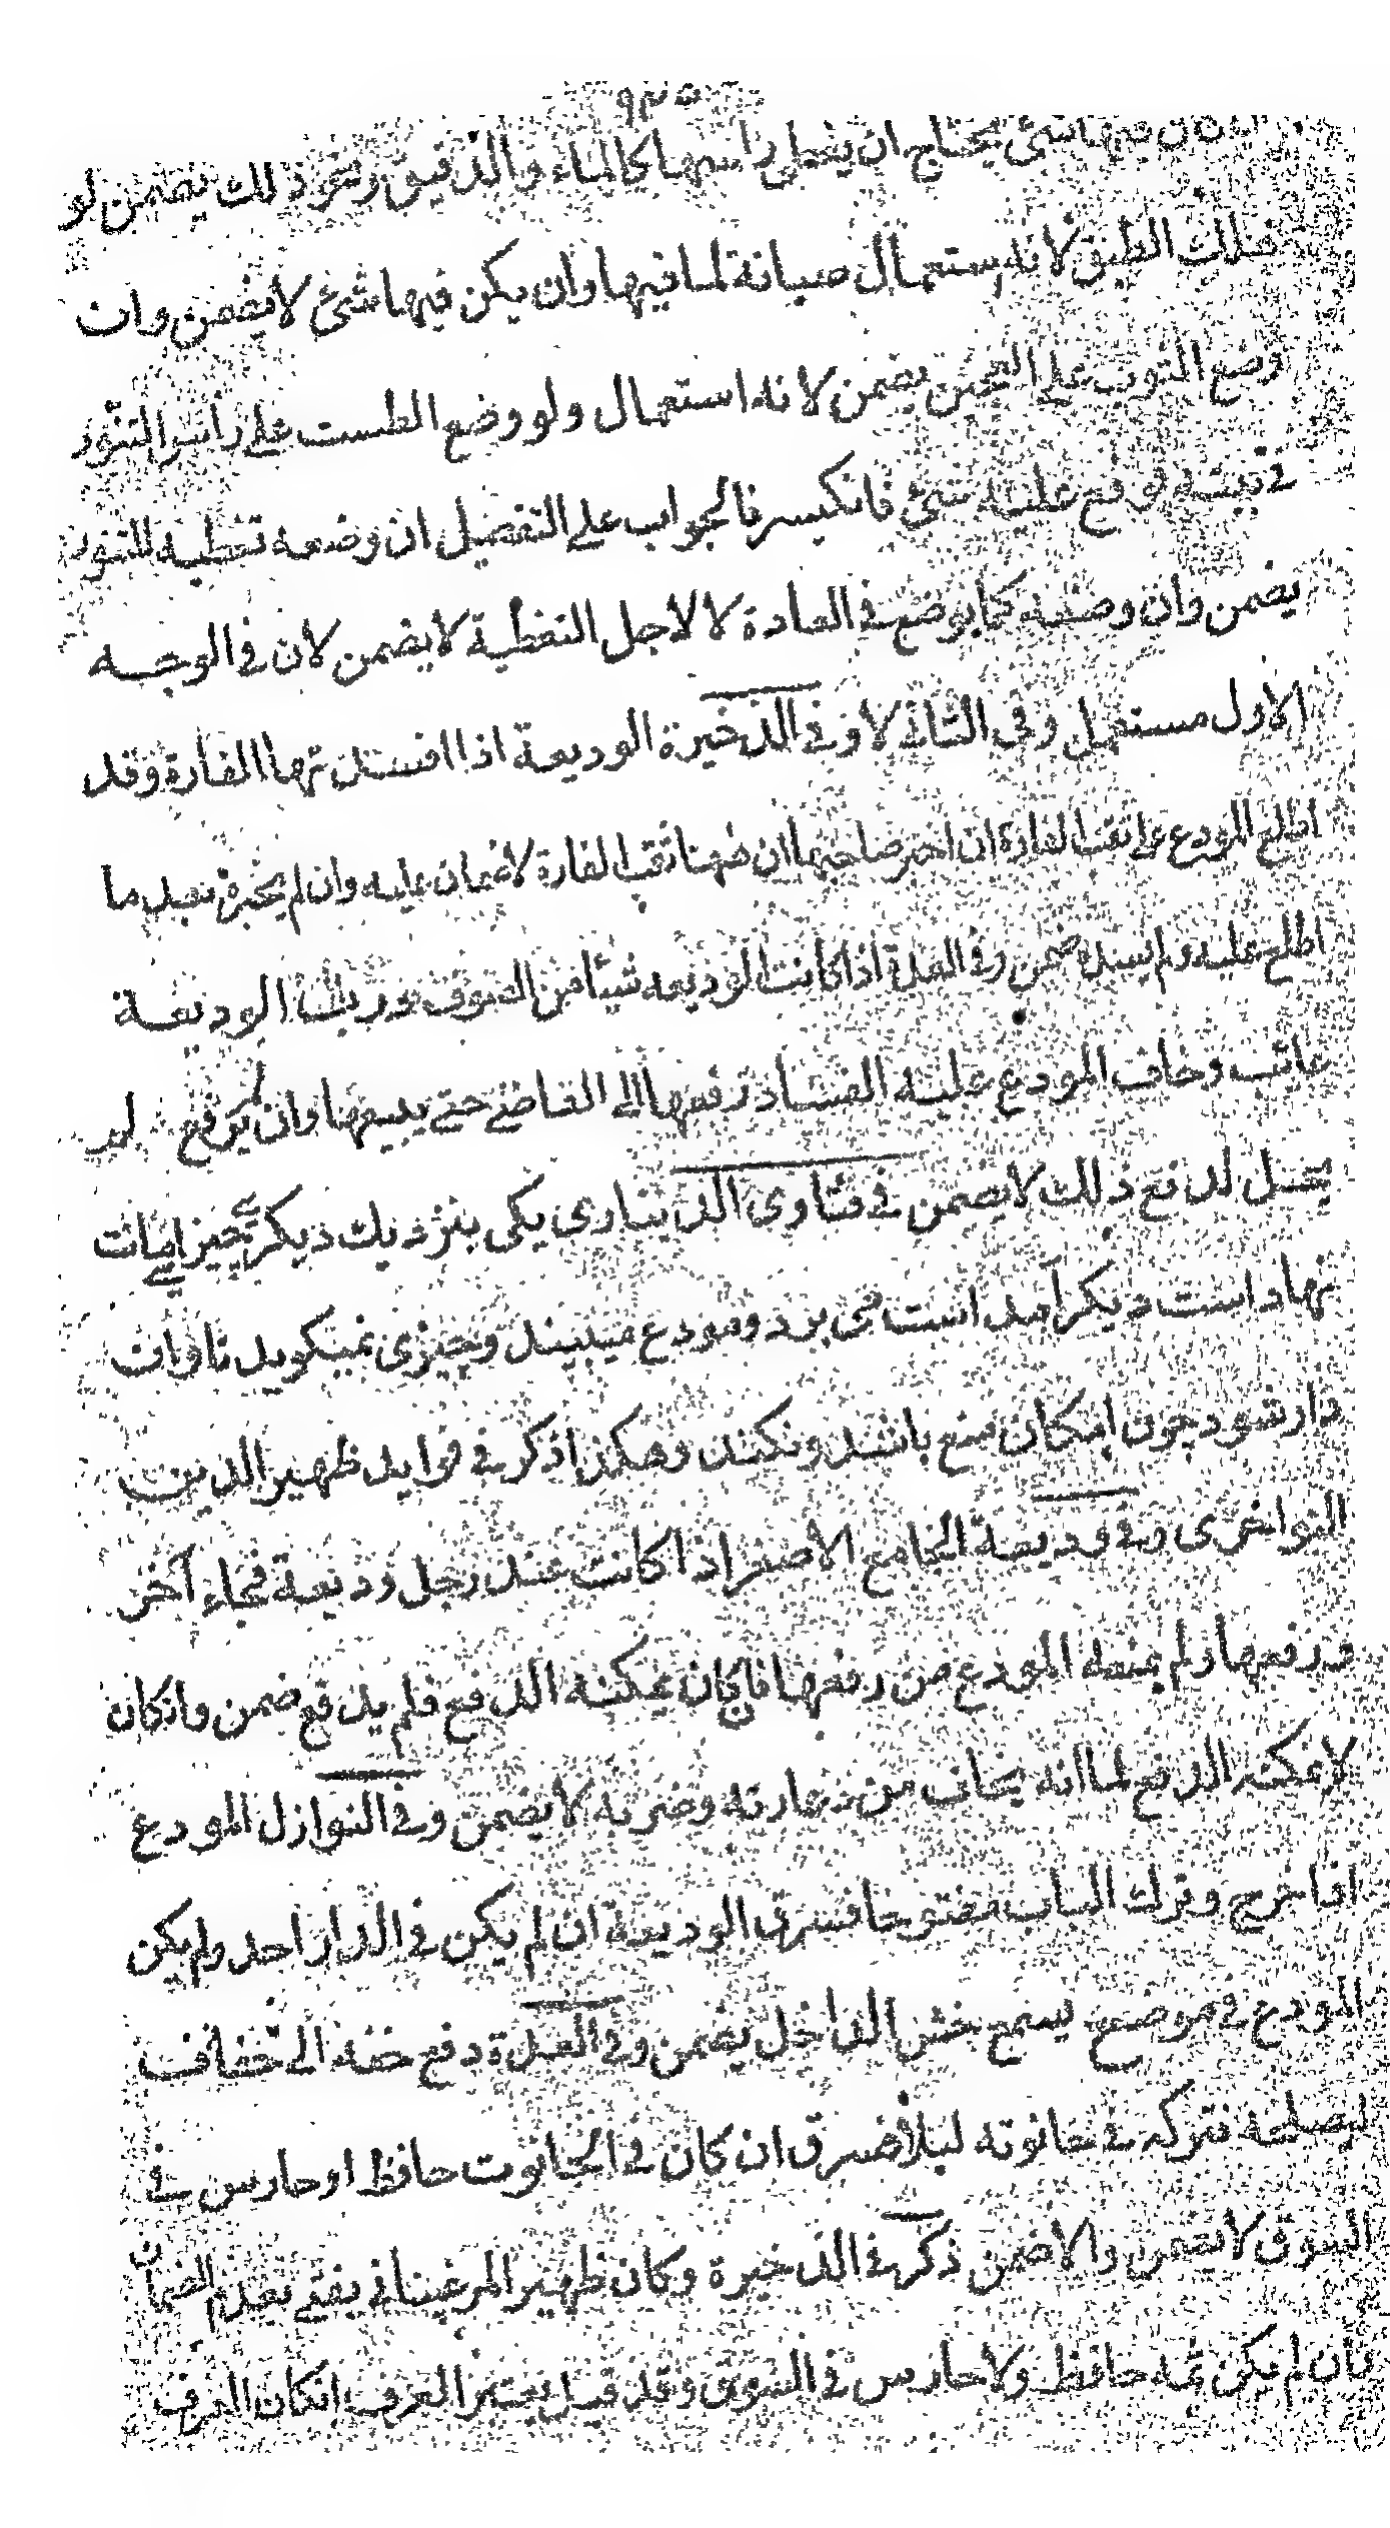 ٩٣٥
ان كان فيها شئ يحتاج ان يغطى راسها كالماء والدقيق ونحو ذلك يضمن لو
هلك الطبق لانه استعمال صيانة لما فيها وان يكن فيها شئ لا يضمن وان
وضع الثوب على العجين يضمن لانه استعمال ولو وضع الطست على راس التنور
في بيته فوقع عليه شئ فانكسر فالجواب على التفصيل ان وضعه تغطية للتنور
يضمن وان وضعه كما يوضع في العادة لا لاجل التغطية لا يضمن لان في الوجه
الاول مستعمل وفي الثاني لا وفي الذخيرة الوديعة اذا افسدتها الفارة وقد
اطلع المودع على ثقب الفارة ان اخبر صاحبها ان ههنا ثقب الفارة لا ضمان عليه وان لم يخبره بعد ما
اطلع عليه ولم يسده ضمن وفي العدة اذا كانت الوديعه شيئا من الصوف ورب الوديعة
غائب وخاف المودع عليه الفساد رفعها الى القاضي حتى يبيعها وان لم يرفع لم
لا يضمن في فتاوى الديناري يكى بنزديك ديكرى چيز امانت
نهاد است ديكر آمد است مى برد ومودع ميبيند وچيزى نميكويد تاوان
دار شود چون امكان منع باشد ونكند وهكذا ذكر في فوايد ظهير الدين
وفي وديعة الجامع الاصغر اذا كانت عند رجل وديعة فجاء آخر
ورفعها ولم يمنعه المودع من رفعها فان كان يمكنه الدفع فلم يدفع ضمن وان كان
لا يمكنه الدفع لما انه يخاف من دعارته وضربه لا يضمن وفي النوازل المودع
اذا خرج وترك الباب مفتوحا فسرق الوديعة ان لم يكن في الدار احد ولم يكن
المودع في موضع يسمع حس الداخل يضمن وفي العدة دفع خفه الى خفاف
ليصلحه فتركه في حانوته ليلا فسرق ان كان في الحانوت حافظ او حارس في
السوق لا يضمن والا ضمن ذكر في الذخيرة وكان ظهير المرغيناني يفتي بعدم الضمان
فان لم يكن ثمه حافظ ولا حارس في السوق وقد قيل يعتبر العرف ان كان العرف